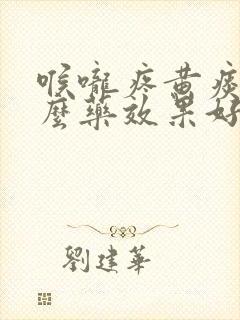 喉嚨疼黄痰
麼藥效果好
劉建華